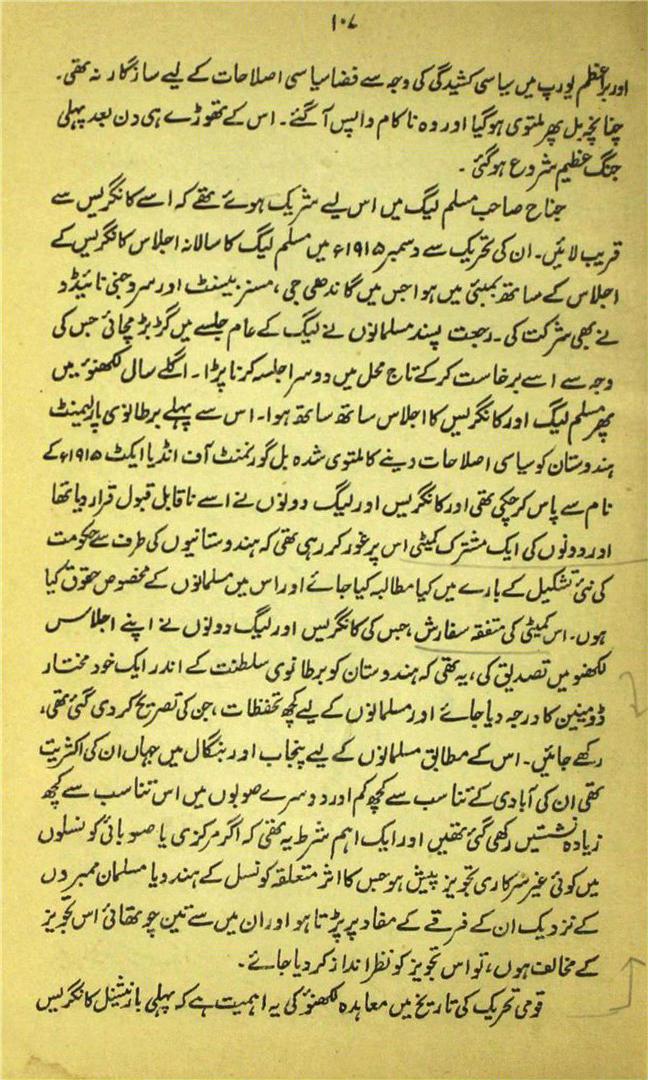 ۱۰۷
اور براعظم یورپ میں سیاسی کشیدگی کی وجہ سے فضا سیاسی اصلاحات کے لیے سازگار نہ تھی۔
چنانچہ بل پھر ملتوی ہوگیا اور وہ ناکام واپس آگئے۔ اس کے تھوڑے ہی دن بعد پہلی
جنگ عظیم شروع ہوگئی۔
جناح صاحب مسلم لیگ میں اس لیے شریک ہوئے تھے کہ اسے کانگریس سے
قریب لائیں۔ ان کی تحریک سے دسمبر ۱۹۱۵ء میں مسلم لیگ کا سالانہ اجلاس کانگریس کے
اجلاس کے ساتھ بمبئی میں ہوا جس میں گاندھی جی، مسز بیسنٹ اور سروجنی نائیڈو
نے بھی شرکت کی۔ رجعت پسند مسلمانوں نے لیگ کے عام جلسے میں گڑبڑ مچائی جس کی
وجہ سے اسے برخاست کرکے تاج محل میں دوسرا جلسہ کرنا پڑا۔ اگلے سال لکھنؤ میں
پھر مسلم لیگ اور کانگریس کا اجلاس ساتھ ساتھ ہوا۔ اس سے پہلے برطانوی پارلیمنٹ
ہندوستان کو سیاسی اصلاحات دینے کا ملتوی شدہ بل گورنمنٹ آف انڈیا ایکٹ ۱۹۱۵ء کے
نام سے پاس کرچکی تھی اور کانگریس اور لیگ دونوں نے اسے ناقابل قبول قرار دیا تھا
اور دونوں کی ایک مشترک کمیٹی اس پر غور کر رہی تھی کہ ہندوستانیوں کی طرف سے حکومت
کی نئی تشکیل کے بارے میں کیا مطالبہ کیا جائے اور اس میں مسلمانوں کے مخصوص حقوق کیا
ہوں۔ اس کمیٹی کی متفقہ سفارش، جس کی کانگریس اور لیگ دونوں نے اپنے اجلاس
لکھنؤ میں تصدیق کی، یہ تھی کہ ہندوستان کو برطانوی سلطنت کے اندر ایک خود مختار
ڈومینین کا درجہ دیا جائے اور مسلمانوں کے لیے کچھ تحفظات، جن کی تصریح کردی گئی تھی،
رکھے جائیں۔ اس کے مطابق مسلمانوں کے لیے پنجاب اور بنگال میں جہاں ان کی اکثریت
تھی ان کی آبادی کے تناسب سے کچھ کم اور دوسرے صوبوں میں اس تناسب سے کچھ
زیادہ نشستیں رکھی گئی تھیں اور ایک اہم شرط یہ تھی کہ اگر مرکزی یا صوبائی کونسلوں
میں کوئی غیر سرکاری تجویز پیش ہو جس کا اثر متعلقہ کونسل کے ہندو یا مسلمان ممبروں
کے نزدیک ان کے فرقے کے مفاد پر پڑتا ہو اور ان میں سے تین چوتھائی اس تجویز
کے مخالف ہوں، تو اس تجویز کو نظر انداز کردیا جائے۔
قومی تحریک کی تاریخ میں معاہدہ لکھنؤ کی یہ اہمیت ہے کہ پہلی بار نیشنل کانگریس